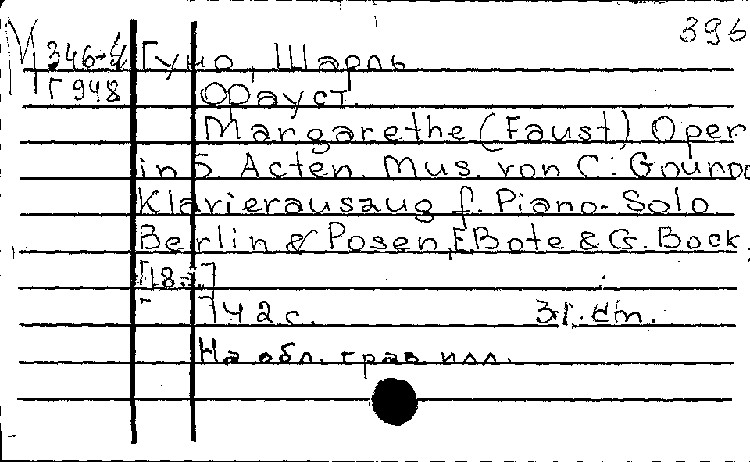 396
М 346-4 Гуно, Шарль
Г 948 Фауст.
Margarethe (Faust) Oper
in 5. Acten. Mus. von C: Gouno
Klavierauszug f. Piano-Solo.
Berlin & Posen, E Bote & G. Bock,
142 с.
На обл. грав. илл.